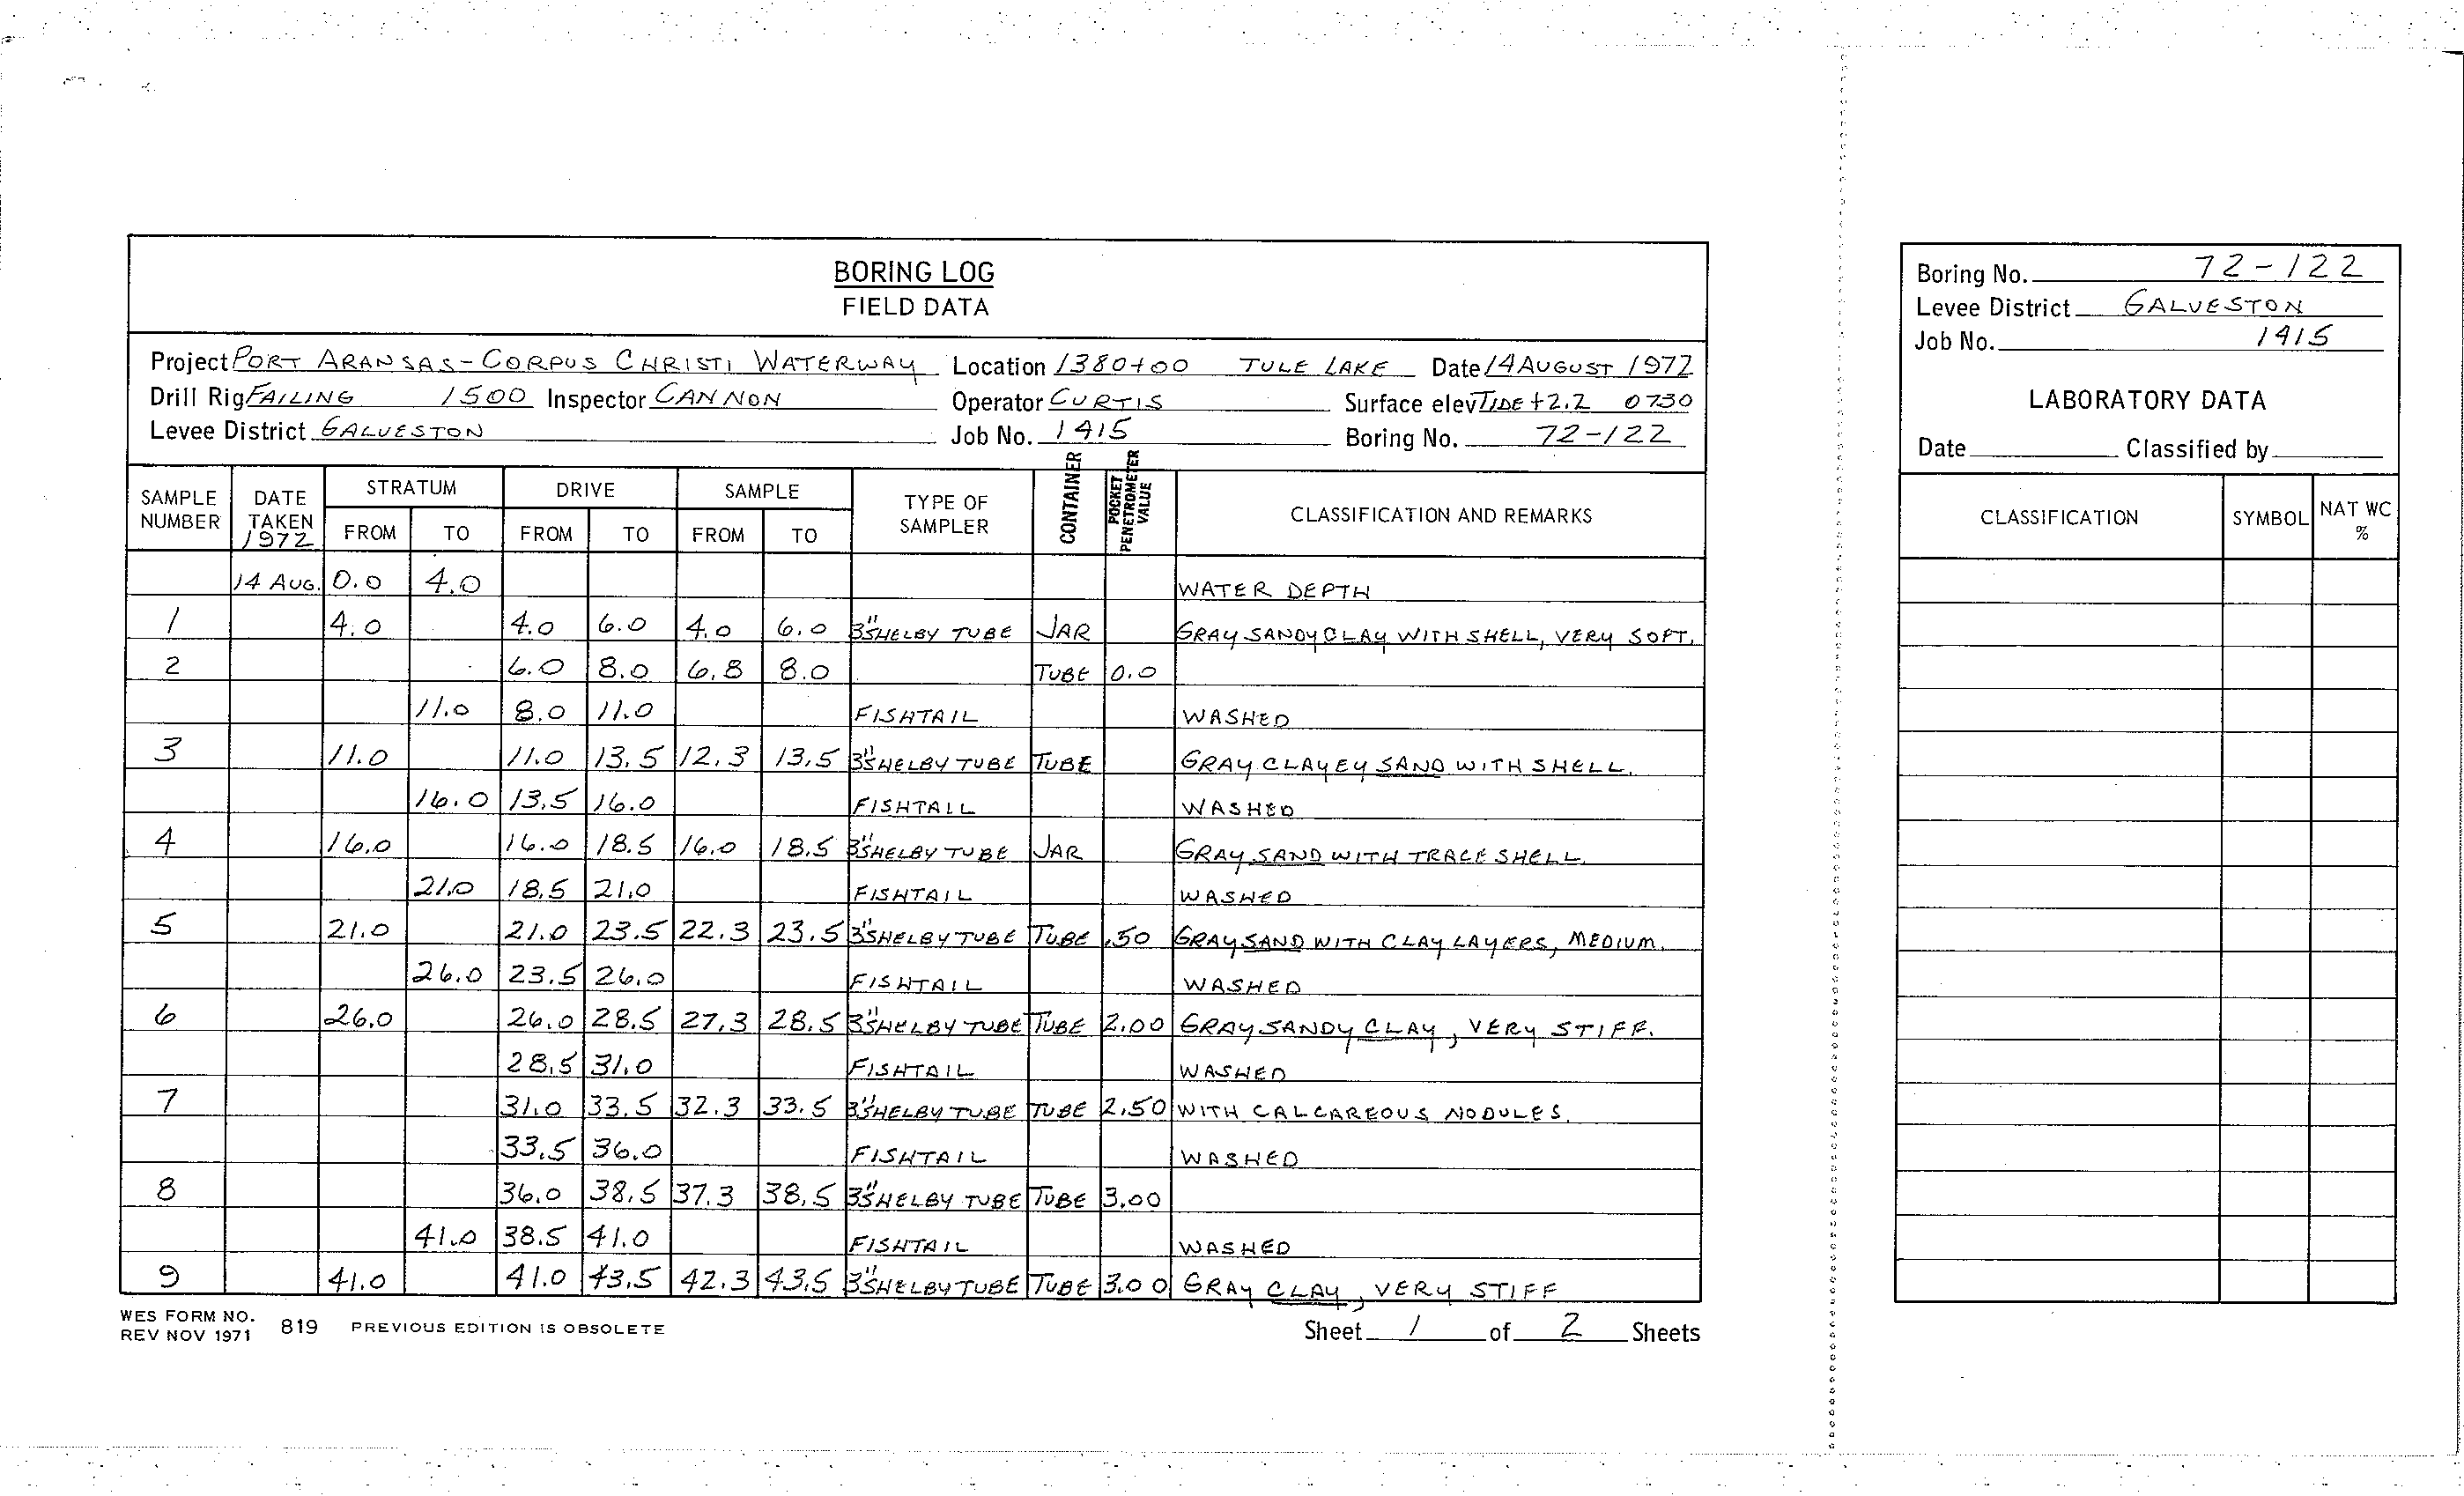 BORING LOG
FIELD DATA
Project PORT ARANSAS-CORPUS CHRISTI WATERWAY Location 1380+00 TULE LAKE Date 14 AUGUST 1972
Drill Rig FAILING 1500 Inspector CANNON Operator CURTIS Surface elev TIDE +2.2 0730
Levee District GALVESTON Job No. 1415 Boring No. 72-122
SAMPLE NUMBER DATE TAKEN 1972 STRATUM FROM TO DRIVE FROM TO SAMPLE FROM TO TYPE OF SAMPLER CONTAINER POCKET PENETROMETER VALUE CLASSIFICATION AND REMARKS
14 AUG. 0.0 4.0 WATER DEPTH
1 4.0 4.0 6.0 4.0 6.0 3" SHELBY TUBE JAR GRAY SANDY CLAY WITH SHELL, VERY SOFT.
2 6.0 8.0 6.8 8.0 TUBE 0.0
11.0 8.0 11.0 FISHTAIL WASHED
3 11.0 11.0 13.5 12.3 13.5 3" SHELBY TUBE TUBE GRAY CLAYEY SAND WITH SHELL.
16.0 13.5 16.0 FISHTAIL WASHED
4 16.0 16.0 18.5 16.0 18.5 3" SHELBY TUBE JAR GRAY SAND WITH TRACE SHELL.
21.0 18.5 21.0 FISHTAIL WASHED
5 21.0 21.0 23.5 22.3 23.5 3" SHELBY TUBE TUBE .50 GRAY SAND WITH CLAY LAYERS, MEDIUM.
26.0 23.5 26.0 FISHTAIL WASHED
6 26.0 26.0 28.5 27.3 28.5 3" SHELBY TUBE TUBE 2.00 GRAY SANDY CLAY, VERY STIFF.
28.5 31.0 FISHTAIL WASHED
7 31.0 33.5 32.3 33.5 3" SHELBY TUBE TUBE 2.50 WITH CALCAREOUS NODULES.
33.5 36.0 FISHTAIL WASHED
8 36.0 38.5 37.3 38.5 3" SHELBY TUBE TUBE 3.00
41.0 38.5 41.0 FISHTAIL WASHED
9 41.0 41.0 43.5 42.3 43.5 3" SHELBY TUBE TUBE 3.00 GRAY CLAY, VERY STIFF
WES FORM NO. 819 REV NOV 1971 PREVIOUS EDITION IS OBSOLETE
Sheet 1 of 2 Sheets
Boring No. 72-122
Levee District GALVESTON
Job No. 1415
LABORATORY DATA
Date Classified by
CLASSIFICATION SYMBOL NAT WC %